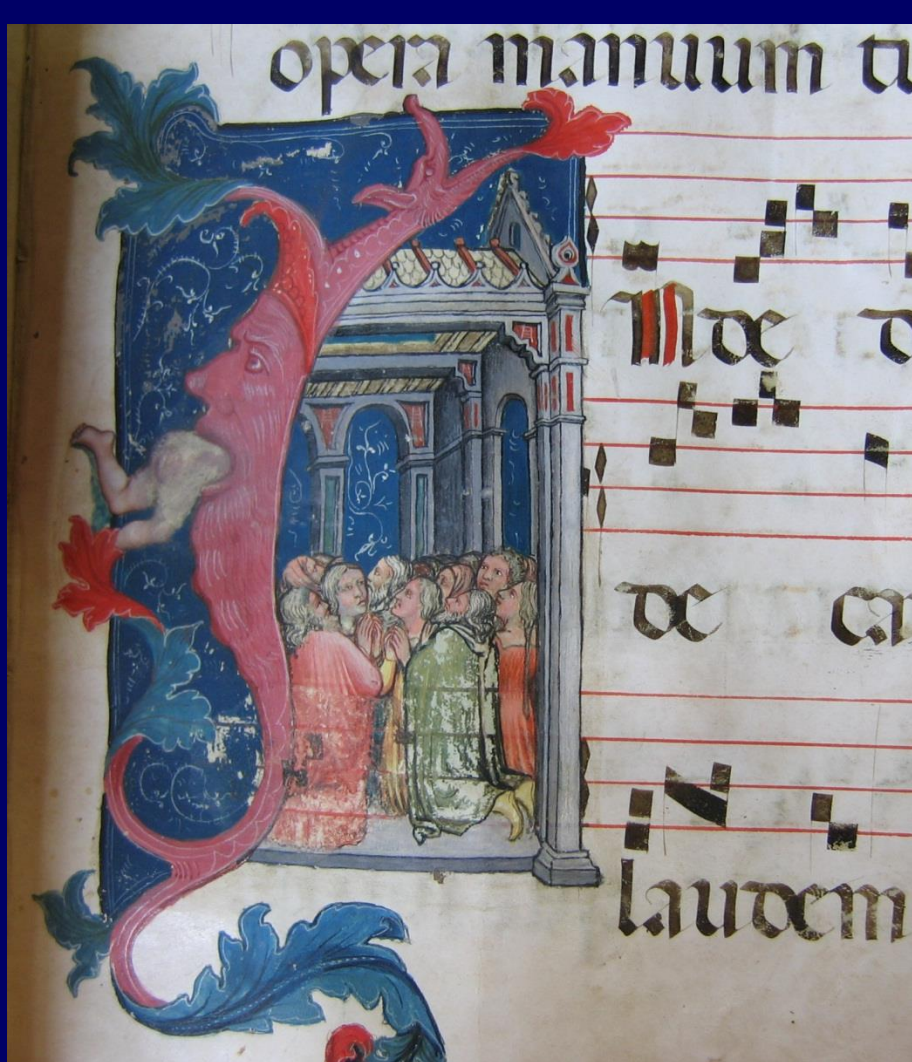 opera manuum tu
Nde d
de ca
laudem